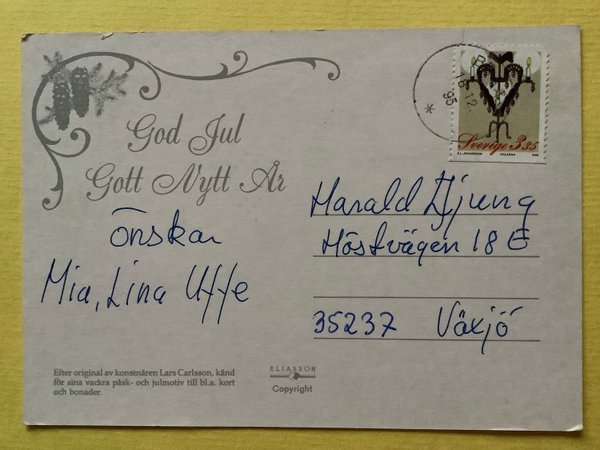 God Jul
Gott Nytt År
önskar
Mia, Lina Uffe
Efter original av konstnären Lars Carlsson, känd
för sina vackra påsk- och julmotiv till bl.a. kort
och bonader.
ELIASSON
Copyright
Sverige 3.35
Harald Ljung
Höstvägen 18 E
35237 Växjö